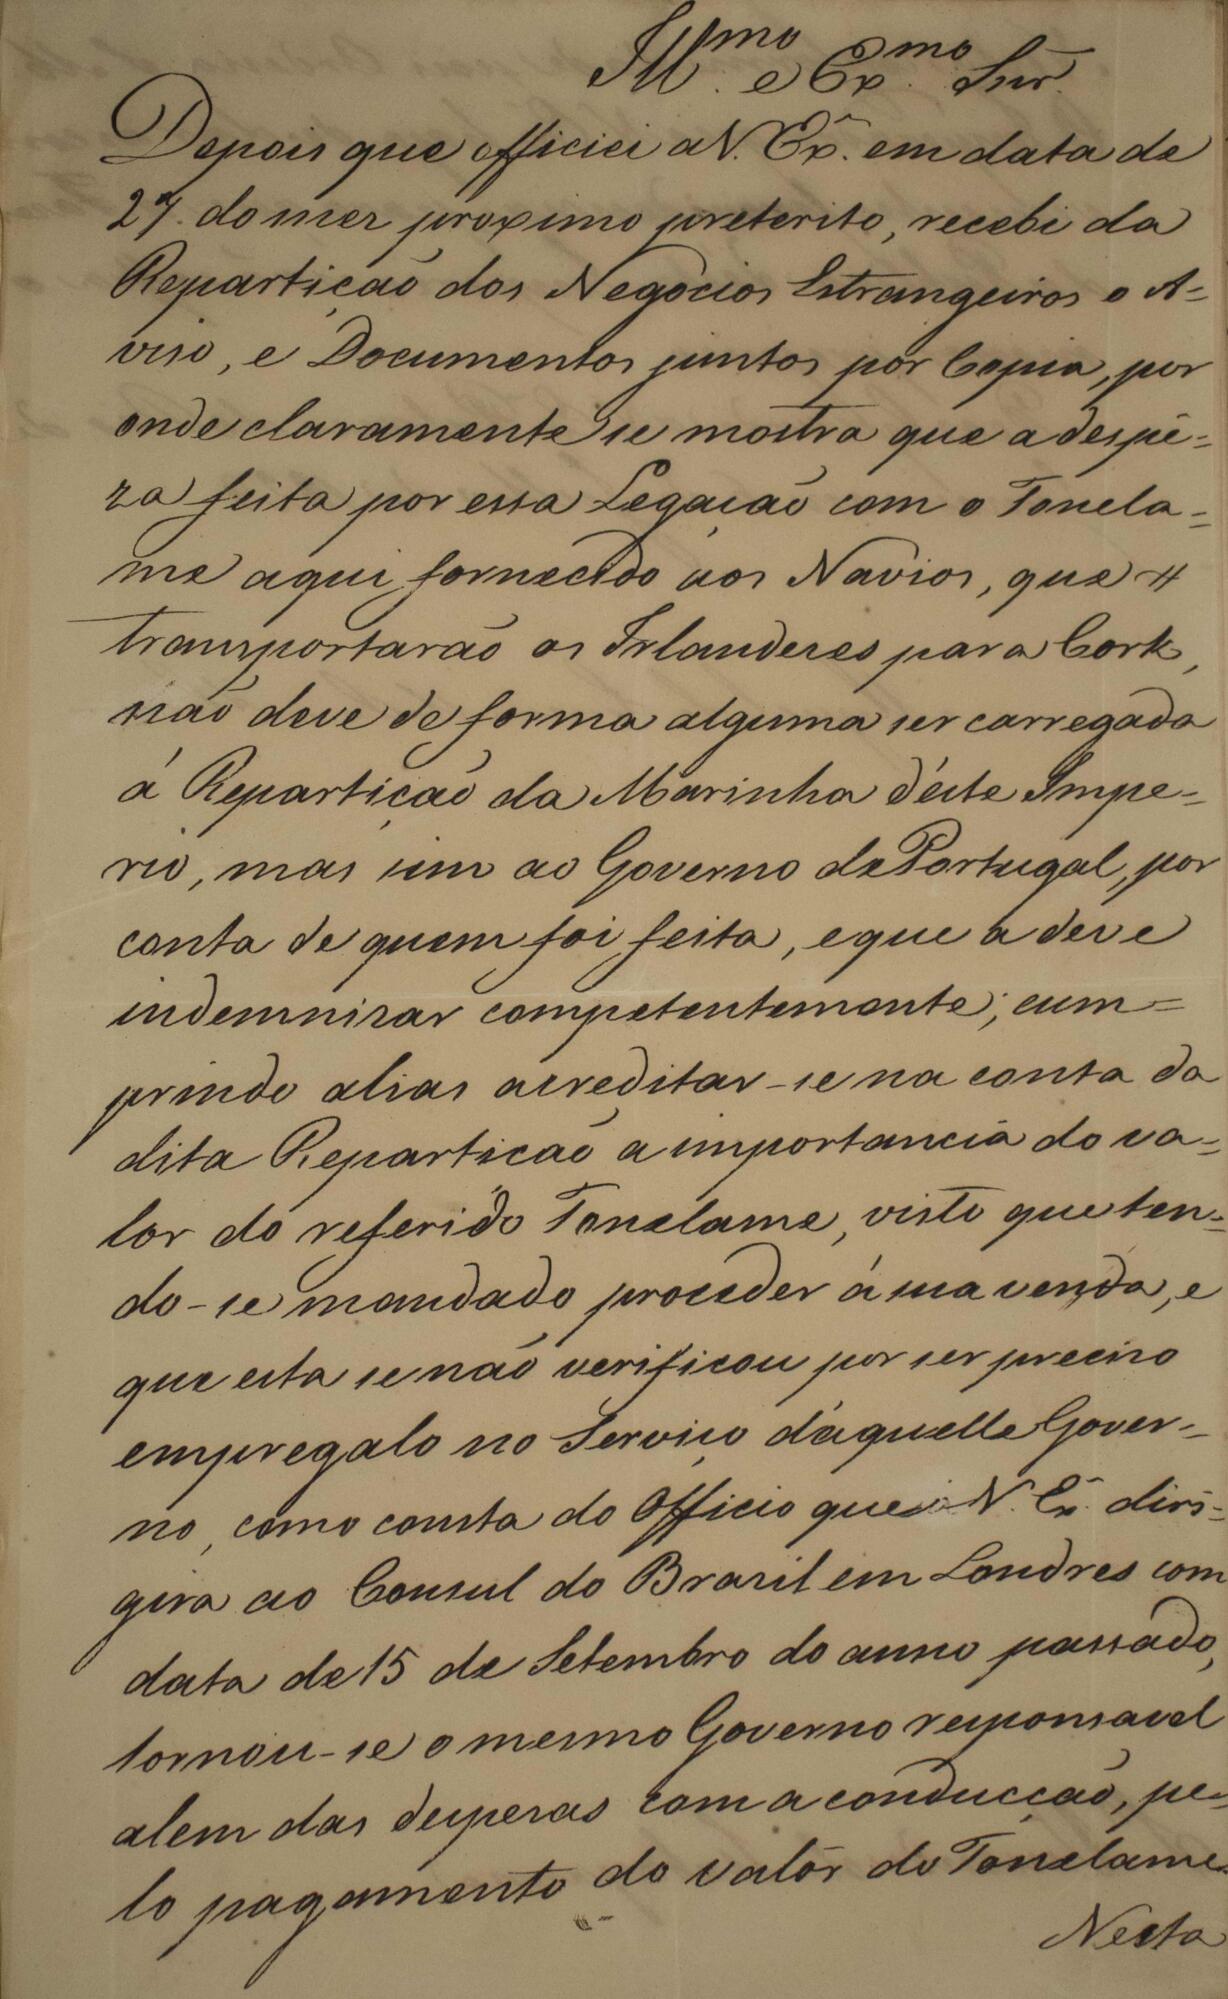 Ill.mo e Ex.mo Snr.
Depois que officiei a V. Ex.ª em data de
27 do mez proximo preterito, recebi da
Repartição dos Negocios Estrangeiros o A=
viso, e Documentos juntos por Copia, por
onde claramente se mostra que a despe=
za feita por essa Legação com o Tonela=
me aqui fornecido aos Navios, que
transportarão os Irlandezes para Cork,
não deve de forma alguma ser carregada
á Repartição da Marinha d'éste Impe=
rio, mas sim ao Governo de Portugal, por
conta de quem foi feita, e que a deve
indemnizar competentemente; cum=
prindo alias acreditar-se na conta da
dita Repartição a importancia do va=
lor do referido Tonelame, visto que ten=
do-se mandado proceder á sua venda, e
que esta se não verificou por ser preciso
empregalo no Serviço d'aquelle Gover=
no, como consta do Officio que V. Ex.ª diri=
gira ao Consul do Brazil em Londres com
data de 15 de Setembro do anno passado,
tornou-se o mesmo Governo responsavel
alem das despezas com a conducção, pe=
lo pagamento do valor do Tonelame.
Nesta